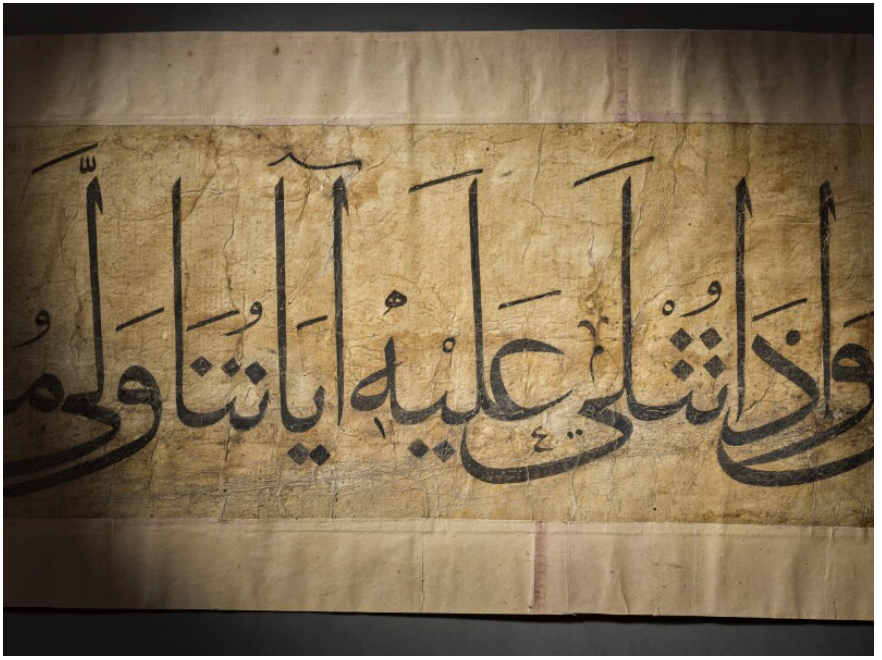 وَإِذَا تُتْلَى عَلَيْهِ آيَاتُنَا وَلَّى